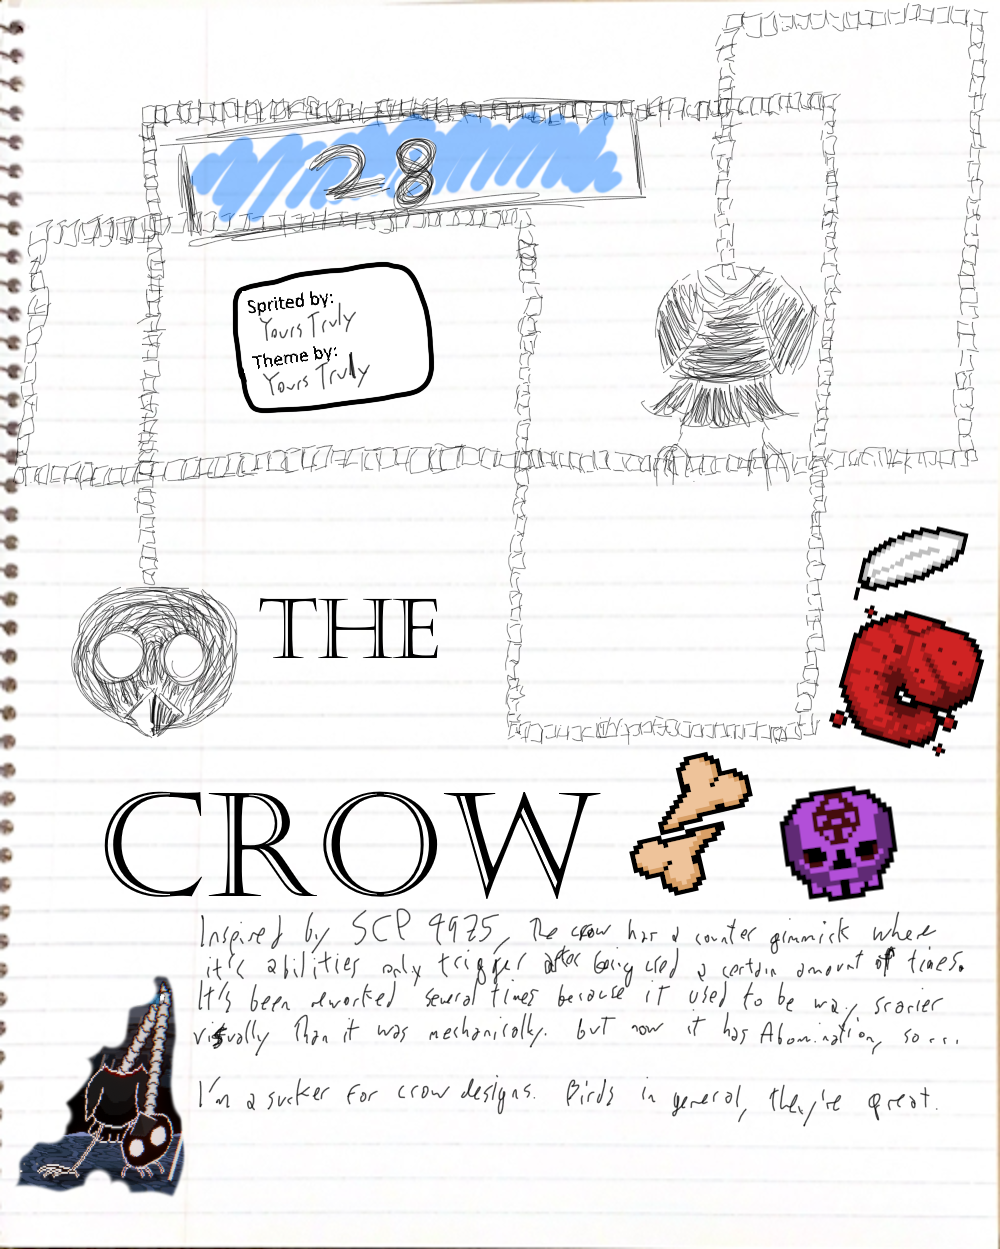 28
Sprited by:
Yours Truly
Theme by:
Yours Truly
THE
CROW
Inspired by SCP 4975, The crow has a counter gimmick where
it's abilities only trigger after being used a certain amount of times.
It's been reworked several times because it used to be way scarier
visually than it was mechanically. but now it has Abomination, so...
I'm a sucker for crow designs. Birds in general, they're great.